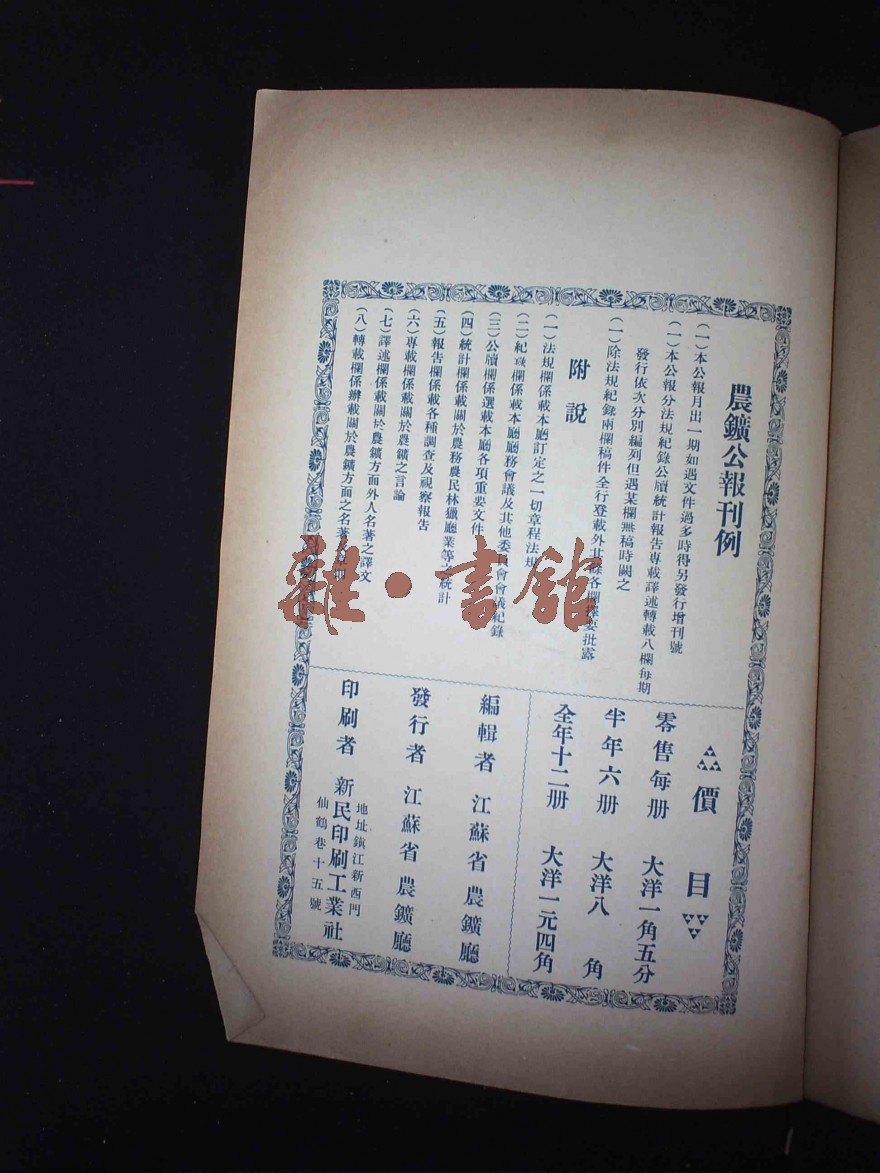 農鑛公報刊例
(一)本公報月出一期如遇文件過多時得另發行增刊號
(一)本公報分法規紀錄公牘統計報告專載譯述轉載八欄每期
發行依次分別編列但遇某欄無稿時闕之
(一)除法規紀錄兩欄稿件全行登載外其餘各欄擇要批露
附說
(一)法規欄係載本廳訂定之一切章程法規
(二)紀錄欄係載本廳廳務會議及其他委員會會議紀錄
(三)公牘欄係選載本廳各項重要文件
(四)統計欄係載關於農務農民林獵廳業等之統計
(五)報告欄係載各種調查及視察報告
(六)專載欄係載關於農鑛之言論
(七)譯述欄係載關於農鑛方面外人名著之譯文
(八)轉載欄係辦載關於農鑛方面之名著
價目
零售每册 大洋一角五分
半年六册 大洋八角
全年十二册 大洋一元四角
編輯者 江蘇省農鑛廳
發行者 江蘇省農鑛廳
印刷者 新民印刷工業社
地址鎮江新西門
仙鶴巷十五號
雜·書館